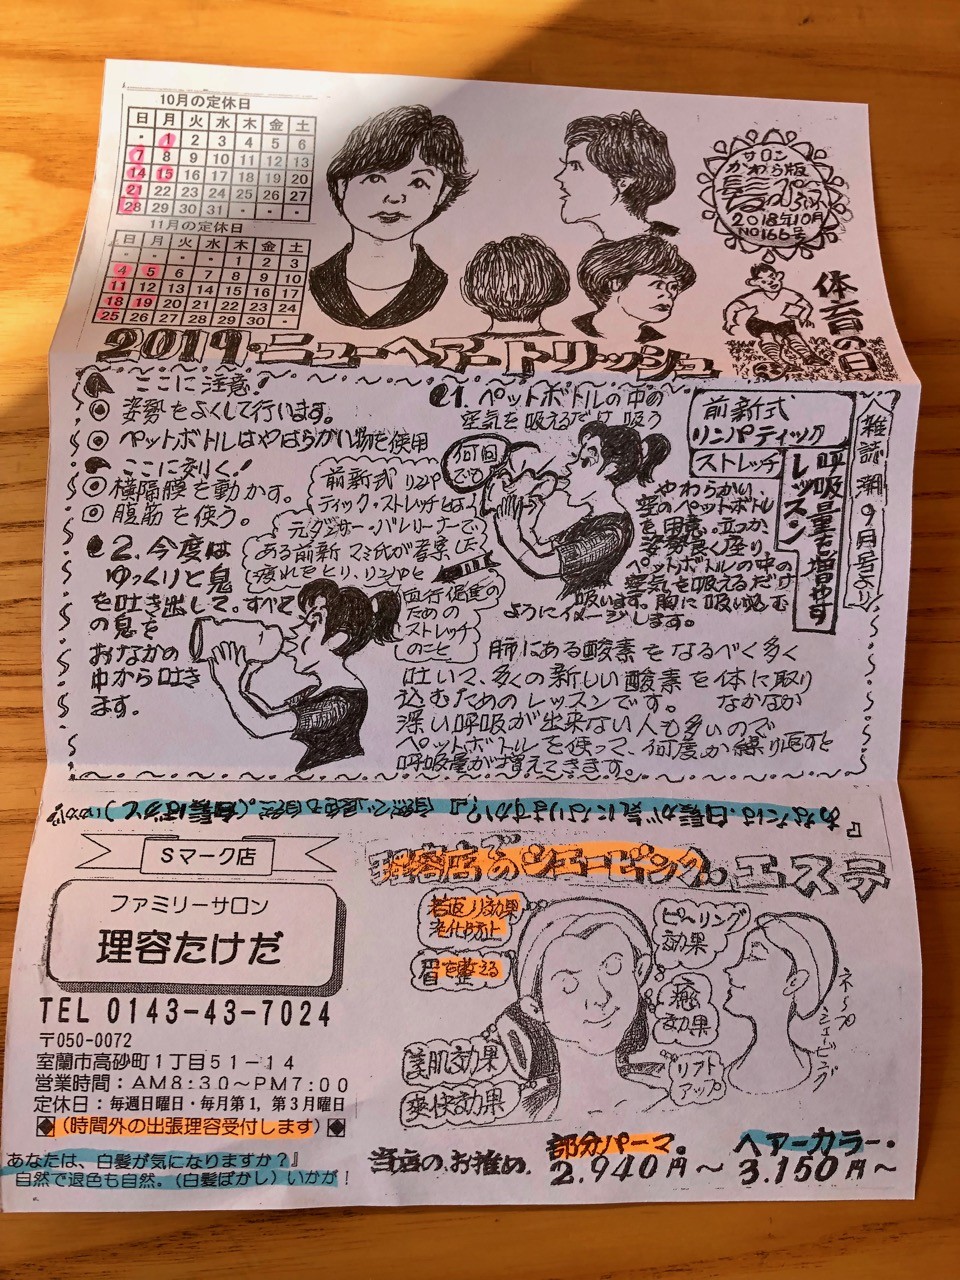 10月の定休日
日 月 火 水 木 金 土
・ 1 2 3 4 5 6
7 8 9 10 11 12 13
14 15 16 17 18 19 20
21 22 23 24 25 26 27
28 29 30 31 ・ ・ ・
11月の定休日
日 月 火 水 木 金 土
・ ・ ・ ・ 1 2 3
4 5 6 7 8 9 10
11 12 13 14 15 16 17
18 19 20 21 22 23 24
25 26 27 28 29 30 ・
サロン
かわら版
2018年10月
NO166号
体育の日
2019・ニューヘアートリッシュ
ここに注意!
◎ 姿勢をよくして行います。
◎ ペットボトルはやはらかい物を使用
ここに刻く!
◎ 横隔膜を動かす。
◎ 腹筋を使う。
1. ペットボトルの中の
空気を吸えるだけ吸う
何回
でも
前新式
リンパティック
ストレッチ
呼吸量も増やす
レッスン
雑誌 潮9月号より
やわらかい
空のペットボトル
を用意。立つか
姿勢良く座り
ペットボトルの中の
空気を吸えるだけ
吸います。胸に吸い込む
ようにイメージします。
前新式リンパ
ティック・ストレッチとは、
元ダンサー・バレリーナで
ある前新マミ氏が考案した
疲れをとり、リンパと
血行促進の
ための
ストレッチ
のこと
2. 今度は
ゆっくりと息
を吐き出して。すべて
の息を
おなかの
中から吐き
ます。
肺にある酸素をなるべく多く
吐いて、多くの新しい酸素を体に取り
込むためのレッスンです。 なかなか
深い呼吸が出来ない人も多いので
ペットボトルを使って、何度か繰り返すと
呼吸量が増えてきます。
あなたは、白髪が気になりますか?』自然で退色も自然。(白髪ぼかし)いかが
Sマーク店
ファミリーサロン
理容たけだ
TEL 0143-43-7024
〒050-0072
室蘭市高砂町1丁目51-14
営業時間:AM8:30~PM7:00
定休日:毎週日曜日・毎月第1,第3月曜日
◆(時間外の出張理容受付します)◆
あなたは、白髪が気になりますか?』
自然で退色も自然。(白髪ぼかし)いかが!
理容店でのシェービング。エステ
若返り効果
老化防止
眉を整える
美肌効果
爽快効果
ピーリング
効果
癒し
効果
リフト
アップ
ネープシェービング
当店の、お推め、
部分パーマ。
2.940円~
ヘアーカラー・
3.150円~